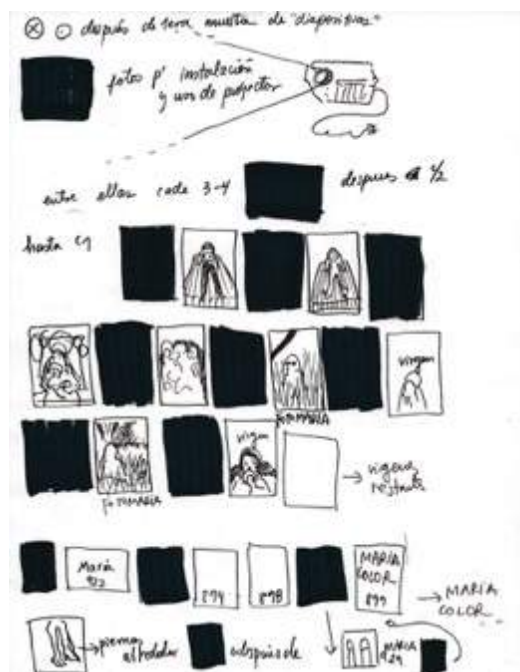 después de 1era muestra de "diapositivas"
fotos pª instalación
y uso de proyector
entre ellas cada 3-4
después 1/2
hasta
virgen
foto MARIA
virgen
foto MARIA
→ virgen
María
894
898
MARIA
COLOR
899
→ MARIA
COLOR
→ piernas
después de
MARIA